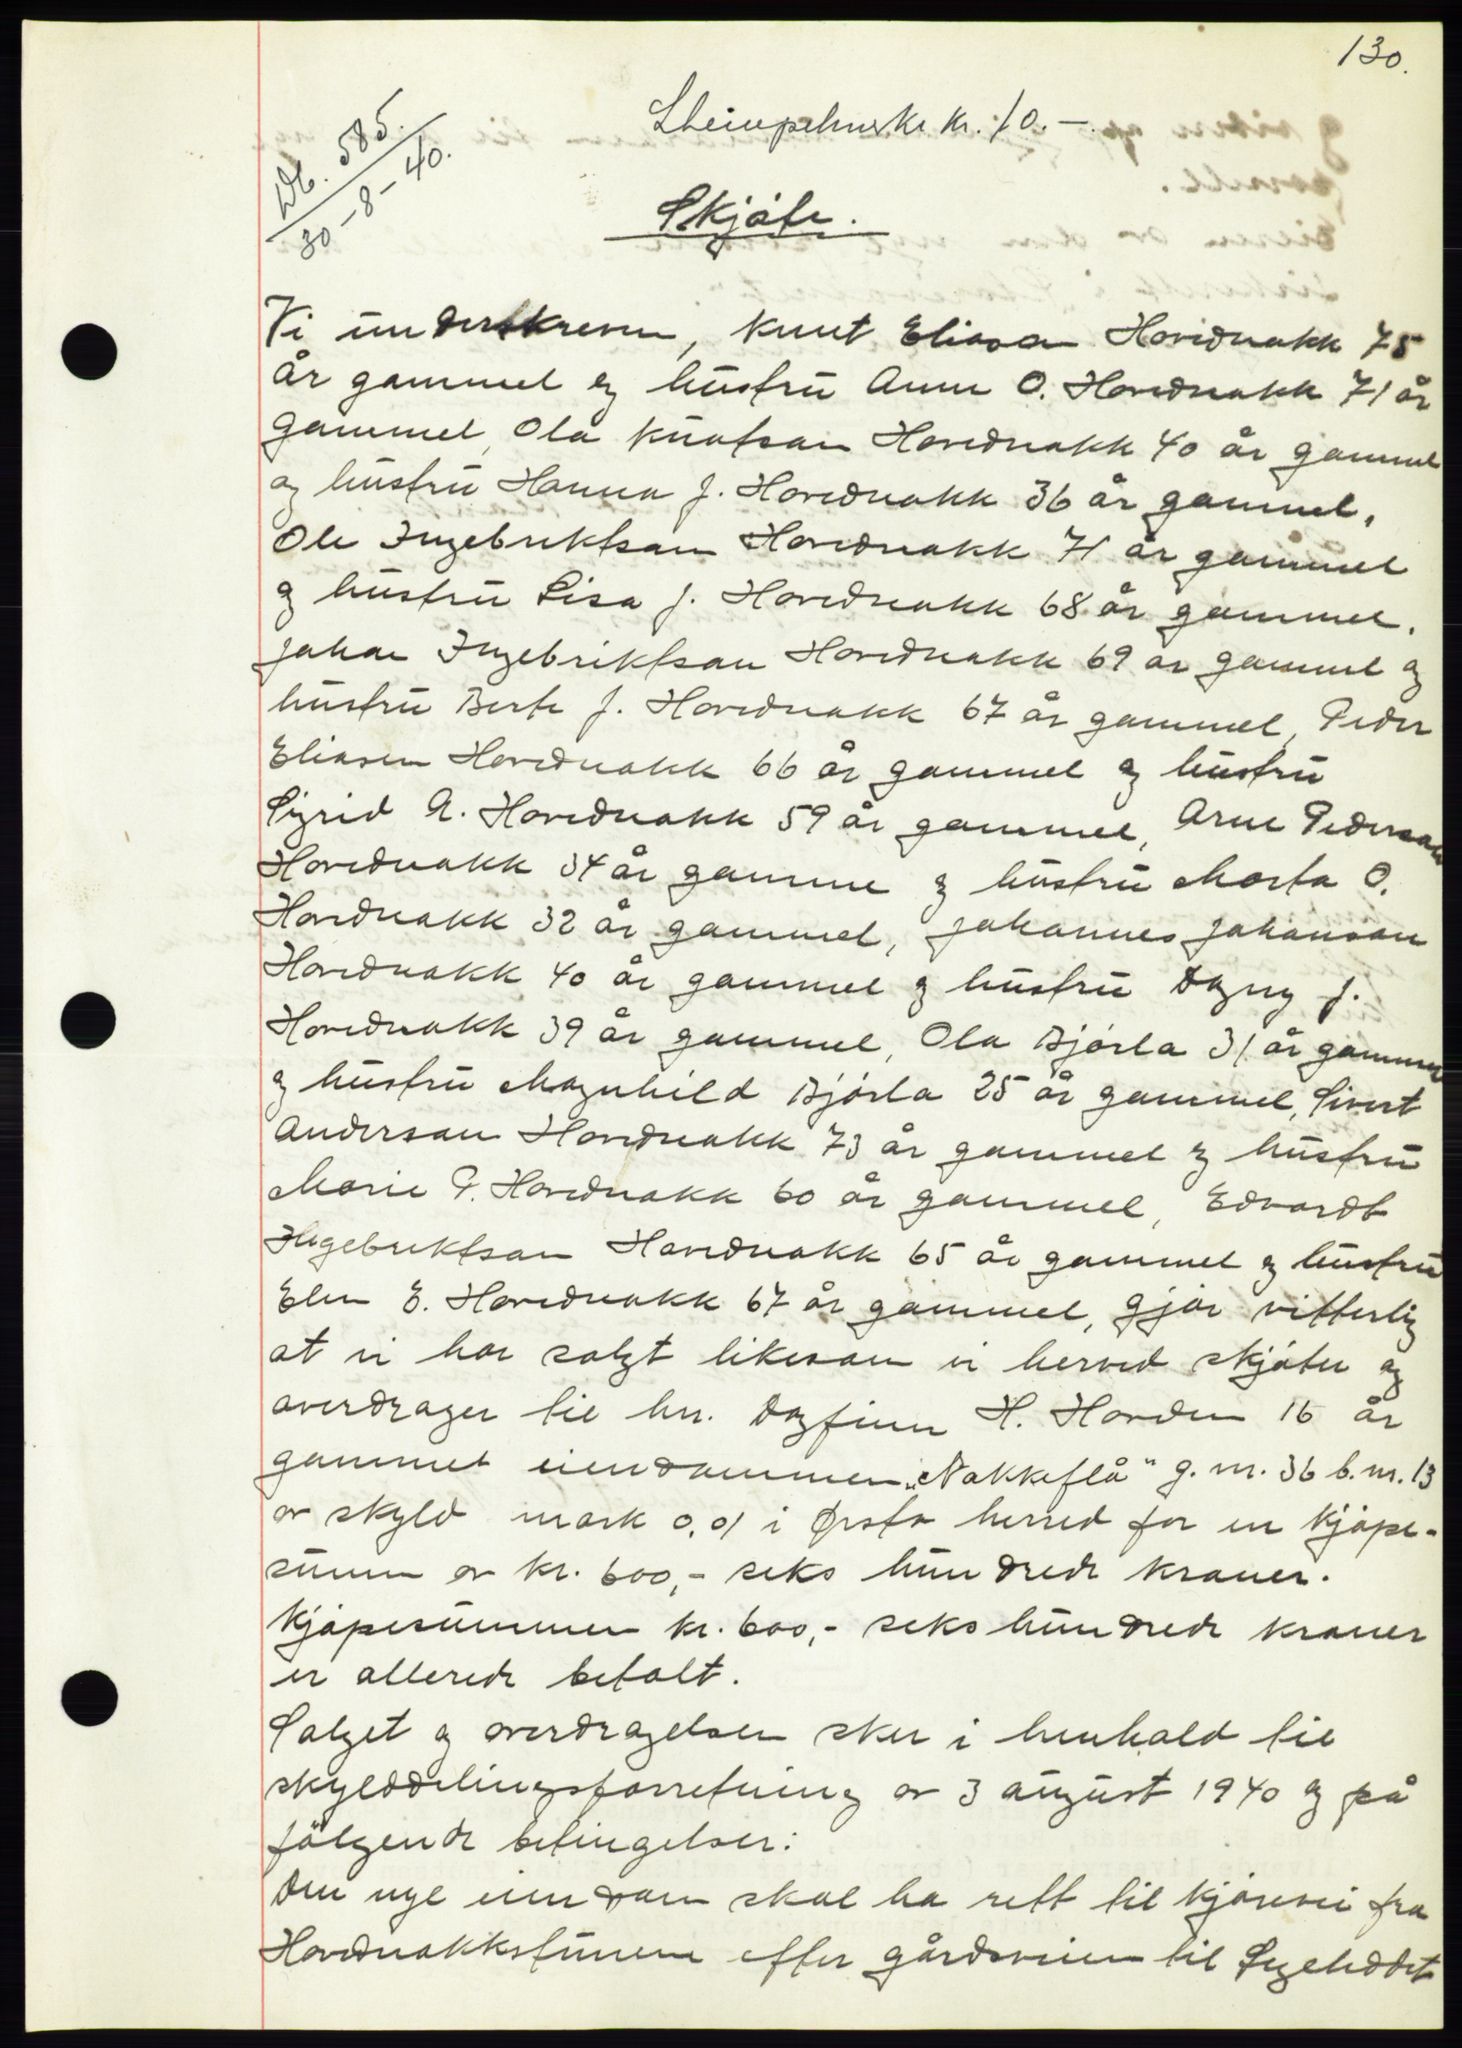 130.
Stempelmerke kr. 10.-.
Db. 585.
30-8-40.
Skjøte.
Vi underskreven, Knut Eliasen Hovdenakk 75
år gammel og hustru Anne O. Hovdenakk 71 år
gammel, Ola Knutsen Hovdenakk 40 år gammel
og hustru Hanna J. Hovdenakk 36 år gammel,
Ole Ingebriktsen Hovdenakk 71 år gammel
og hustru Lisa J. Hovdenakk 68 år gammel.
Johan Ingebriktsen Hovdenakk 69 år gammel og
hustru Berte J. Hovdenakk 67 år gammel, Peder
Eliasen Hovdenakk 66 år gammel og hustru
Sigrid A. Hovdenakk 59 år gammel, Arne Pedersen
Hovdenakk 34 år gamme og hustru Marta O.
Hovdnakk 32 år gammel, Johannes Johansen
Hovdenakk 40 år gammel og hustru Dagny J.
Hovdenakk 39 år gammel, Ola Bjørla 31 år gammel
og hustru Magnhild Bjørla 25 år gammel, Sivert
Andersen Hovdenakk 73 år gammel og hustru
Marie P. Hovdenakk 60 år gammel, Edvardt
Ingebriktsen Hovdenakk 65 år gammel og hustru
Elen E. Hovdenakk 67 år gammel, gjør vitterlig
at vi har solgt likesom vi herved skjøter og
overdrager til hr. Dagfinn H. Hovden 16 år
gammel eiendommen „Nakkeflå" g.nr. 36 b.nr. 13
av skyld mark 0,01 i Ørsta herred for en kjøpe-
summ av kr. 600,- seks hundrede kroner.
Kjøpesummen kr. 600,- seks hundrede kroner
er allerede betalt.
Salget og overdragelsen sker i henhold til
skylddelingsforretning av 3 august 1940 og på
følgende betingelser:
Den nye eiendom skal ha rett til kjørevei fra
Hovdnakkstunene efter gårdsveien til